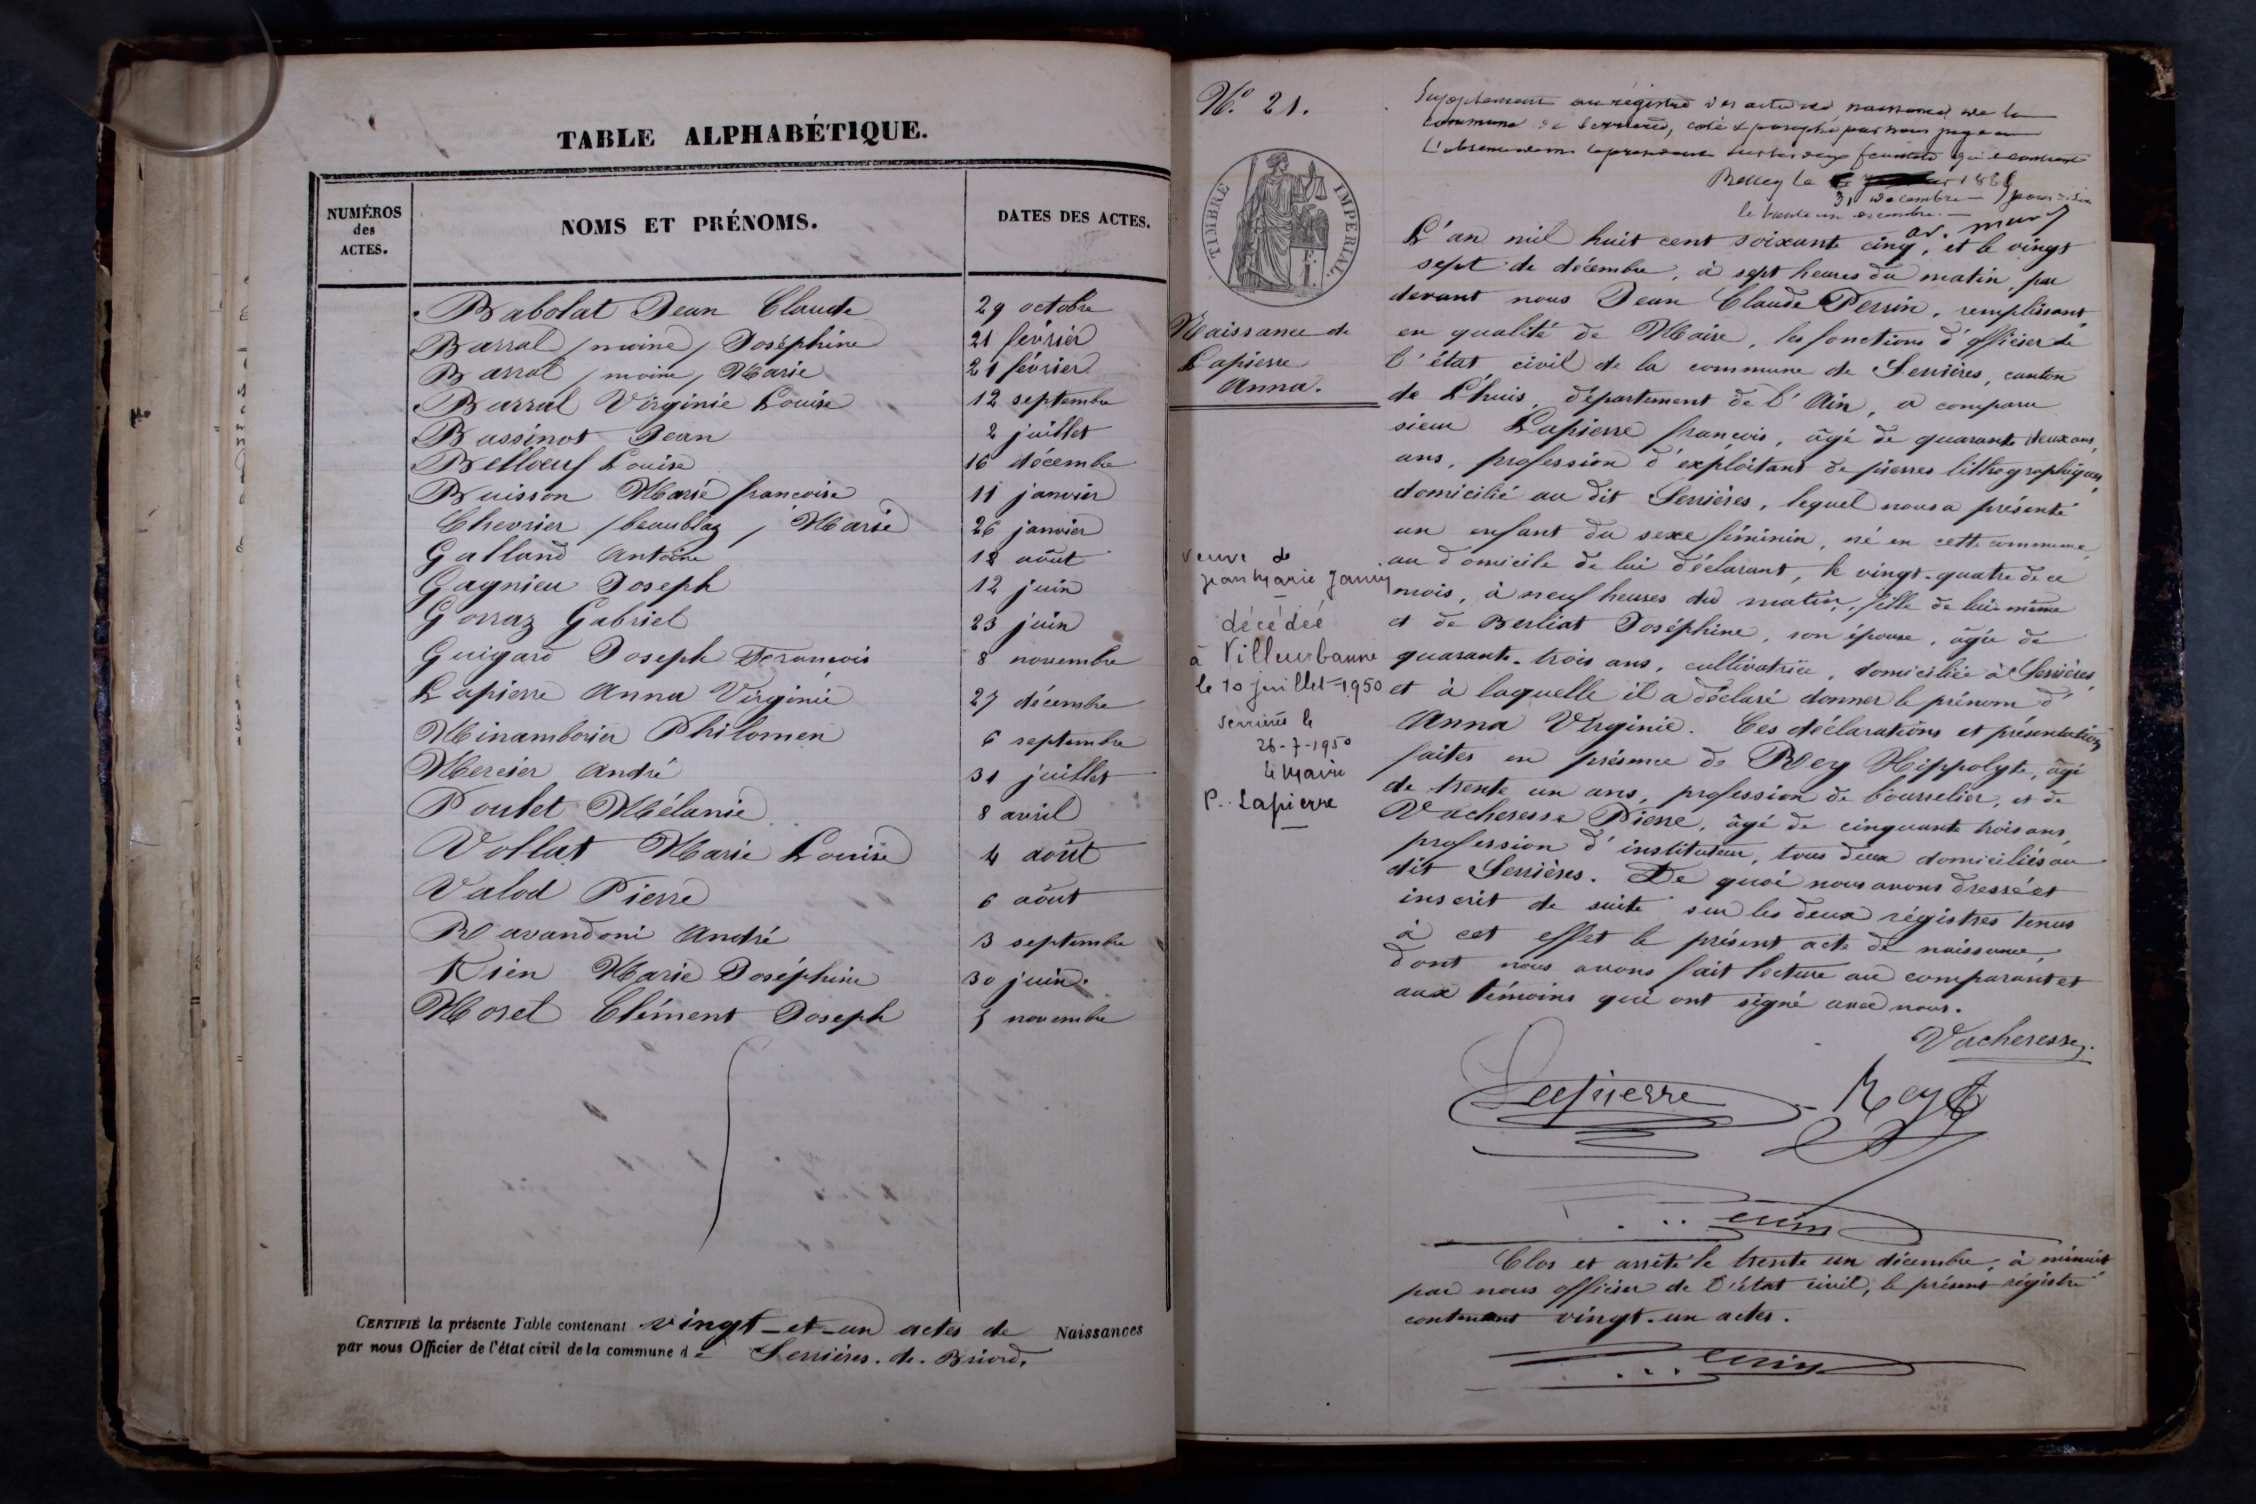 TABLE ALPHABÉTIQUE.
NUMÉROS
des
ACTES.
NOMS ET PRÉNOMS.
DATES DES ACTES.
Babolat Jean Claude 29 octobre
Barral /moine/ Joséphine 21 février
Barral /moine/ Marie 21 février
Barral Virginie Louise 12 septembre
Bassinot Jean 2 juillet
Belloeuf Louise 16 décembre
Buisson Marie françoise 11 janvier
Chevrier /beaublaz/ Marie 26 janvier
Galland Antoine 12 août
Gagnieu Joseph 12 juin
Gorraz Gabriel 23 juin
Guigard Joseph François 8 novembre
Lapierre Anna Virginie 27 décembre
Minamborier Philomen 6 septembre
Mercier André 31 juillet
Poulet Mélanie 8 avril
Vollat Marie Louise 4 août
Valod Pierre 6 août
Ravandoni André 3 septembre
Kien Marie Joséphine 30 juin.
Morel Clément Joseph 5 novembre
CERTIFIÉ la présente Table contenant vingt-et-un actes de Naissances
par nous Officier de l'état civil de la commune de Serrières-de-Briord.
N.° 21.
Supplement au régistre des actes de naissance de la
commune de Serrières, coté & paraphé par nous juge
Belley le
31 décembre
le trente un décembre.
TIMBRE IMPERIAL.
Naissance de
Lapierre
Anna.
L'an mil huit cent soixante cinq, et le vingt
sept de décembre, à sept heures du matin, par
devant nous Jean Claude Perrin, remplissant
en qualité de Maire, les fonctions d'officier de
l'état civil de la commune de Serrières, canton
de Lhuis, département de l'Ain, a comparu
sieur Lapierre françois, âgé de quarante deux ans
ans, profession d'exploitant de pierres lithographiques,
domicilié au dit Serrières, lequel nous a présenté
un enfant du sexe féminin, né en cette commune,
au domicile de lui déclarant, le vingt-quatre de ce
mois, à neuf heures du matin, fille de lui-même
et de Berliat Joséphine, son épouse, âgée de
quarante-trois ans, cultivatrice, domiciliée à Serrières,
et à laquelle il a déclaré donner le prénom d'
Anna Virginie. Ces déclarations et présentation
faites en présence de Rey Hippolyte, âgé
de trente un ans, profession de bourrelier, et de
Vacheresse Pierre, âgé de cinquante trois ans,
profession d'instituteur, tous deux domiciliés au
dit Serrières. De quoi nous avons dressé et
inscrit de suite sur les deux régistres tenus
à cet effet le présent acte de naissance,
dont nous avons fait lecture au comparant et
aux témoins qui ont signé avec nous.
veuve de
Jean Marie Janin
décédée
à Villeurbanne
le 10 juillet 1950
Serrières le
26-7-1950
Le Maire
P. Lapierre
Vacheresse.
Lapierre Rey
Perrin
Clos et arrêté le trente un décembre, à minuit
par nous officier de l'état civil, le présent régistre
contenant vingt-un actes.
Perrin